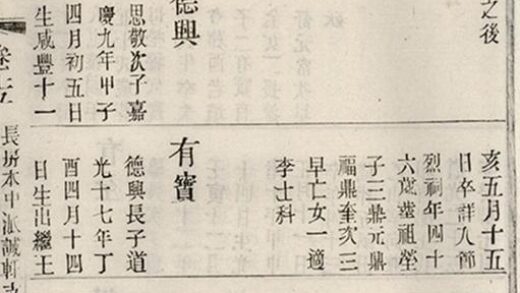 之後
德興
思敬次子嘉
慶九年甲子
四月初五日
生咸豐十一
亥五月十五
日卒詳入節
烈祠年四十
六歲葬祖塋
子三鼎元鼎
福鼎奎次三
早亡女一適
李士科
有寶
德興長子道
光十七年丁
酉四月十四
日生出繼王
卷
長房本中派誠軒